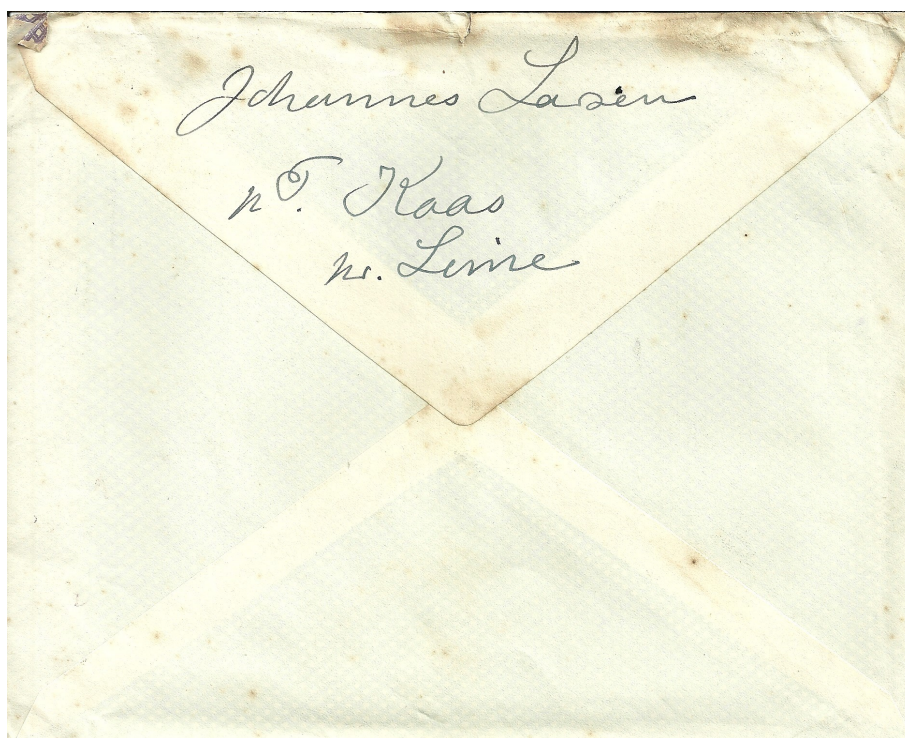 Johannes Larsen
pT. Kaas
pr. Lime